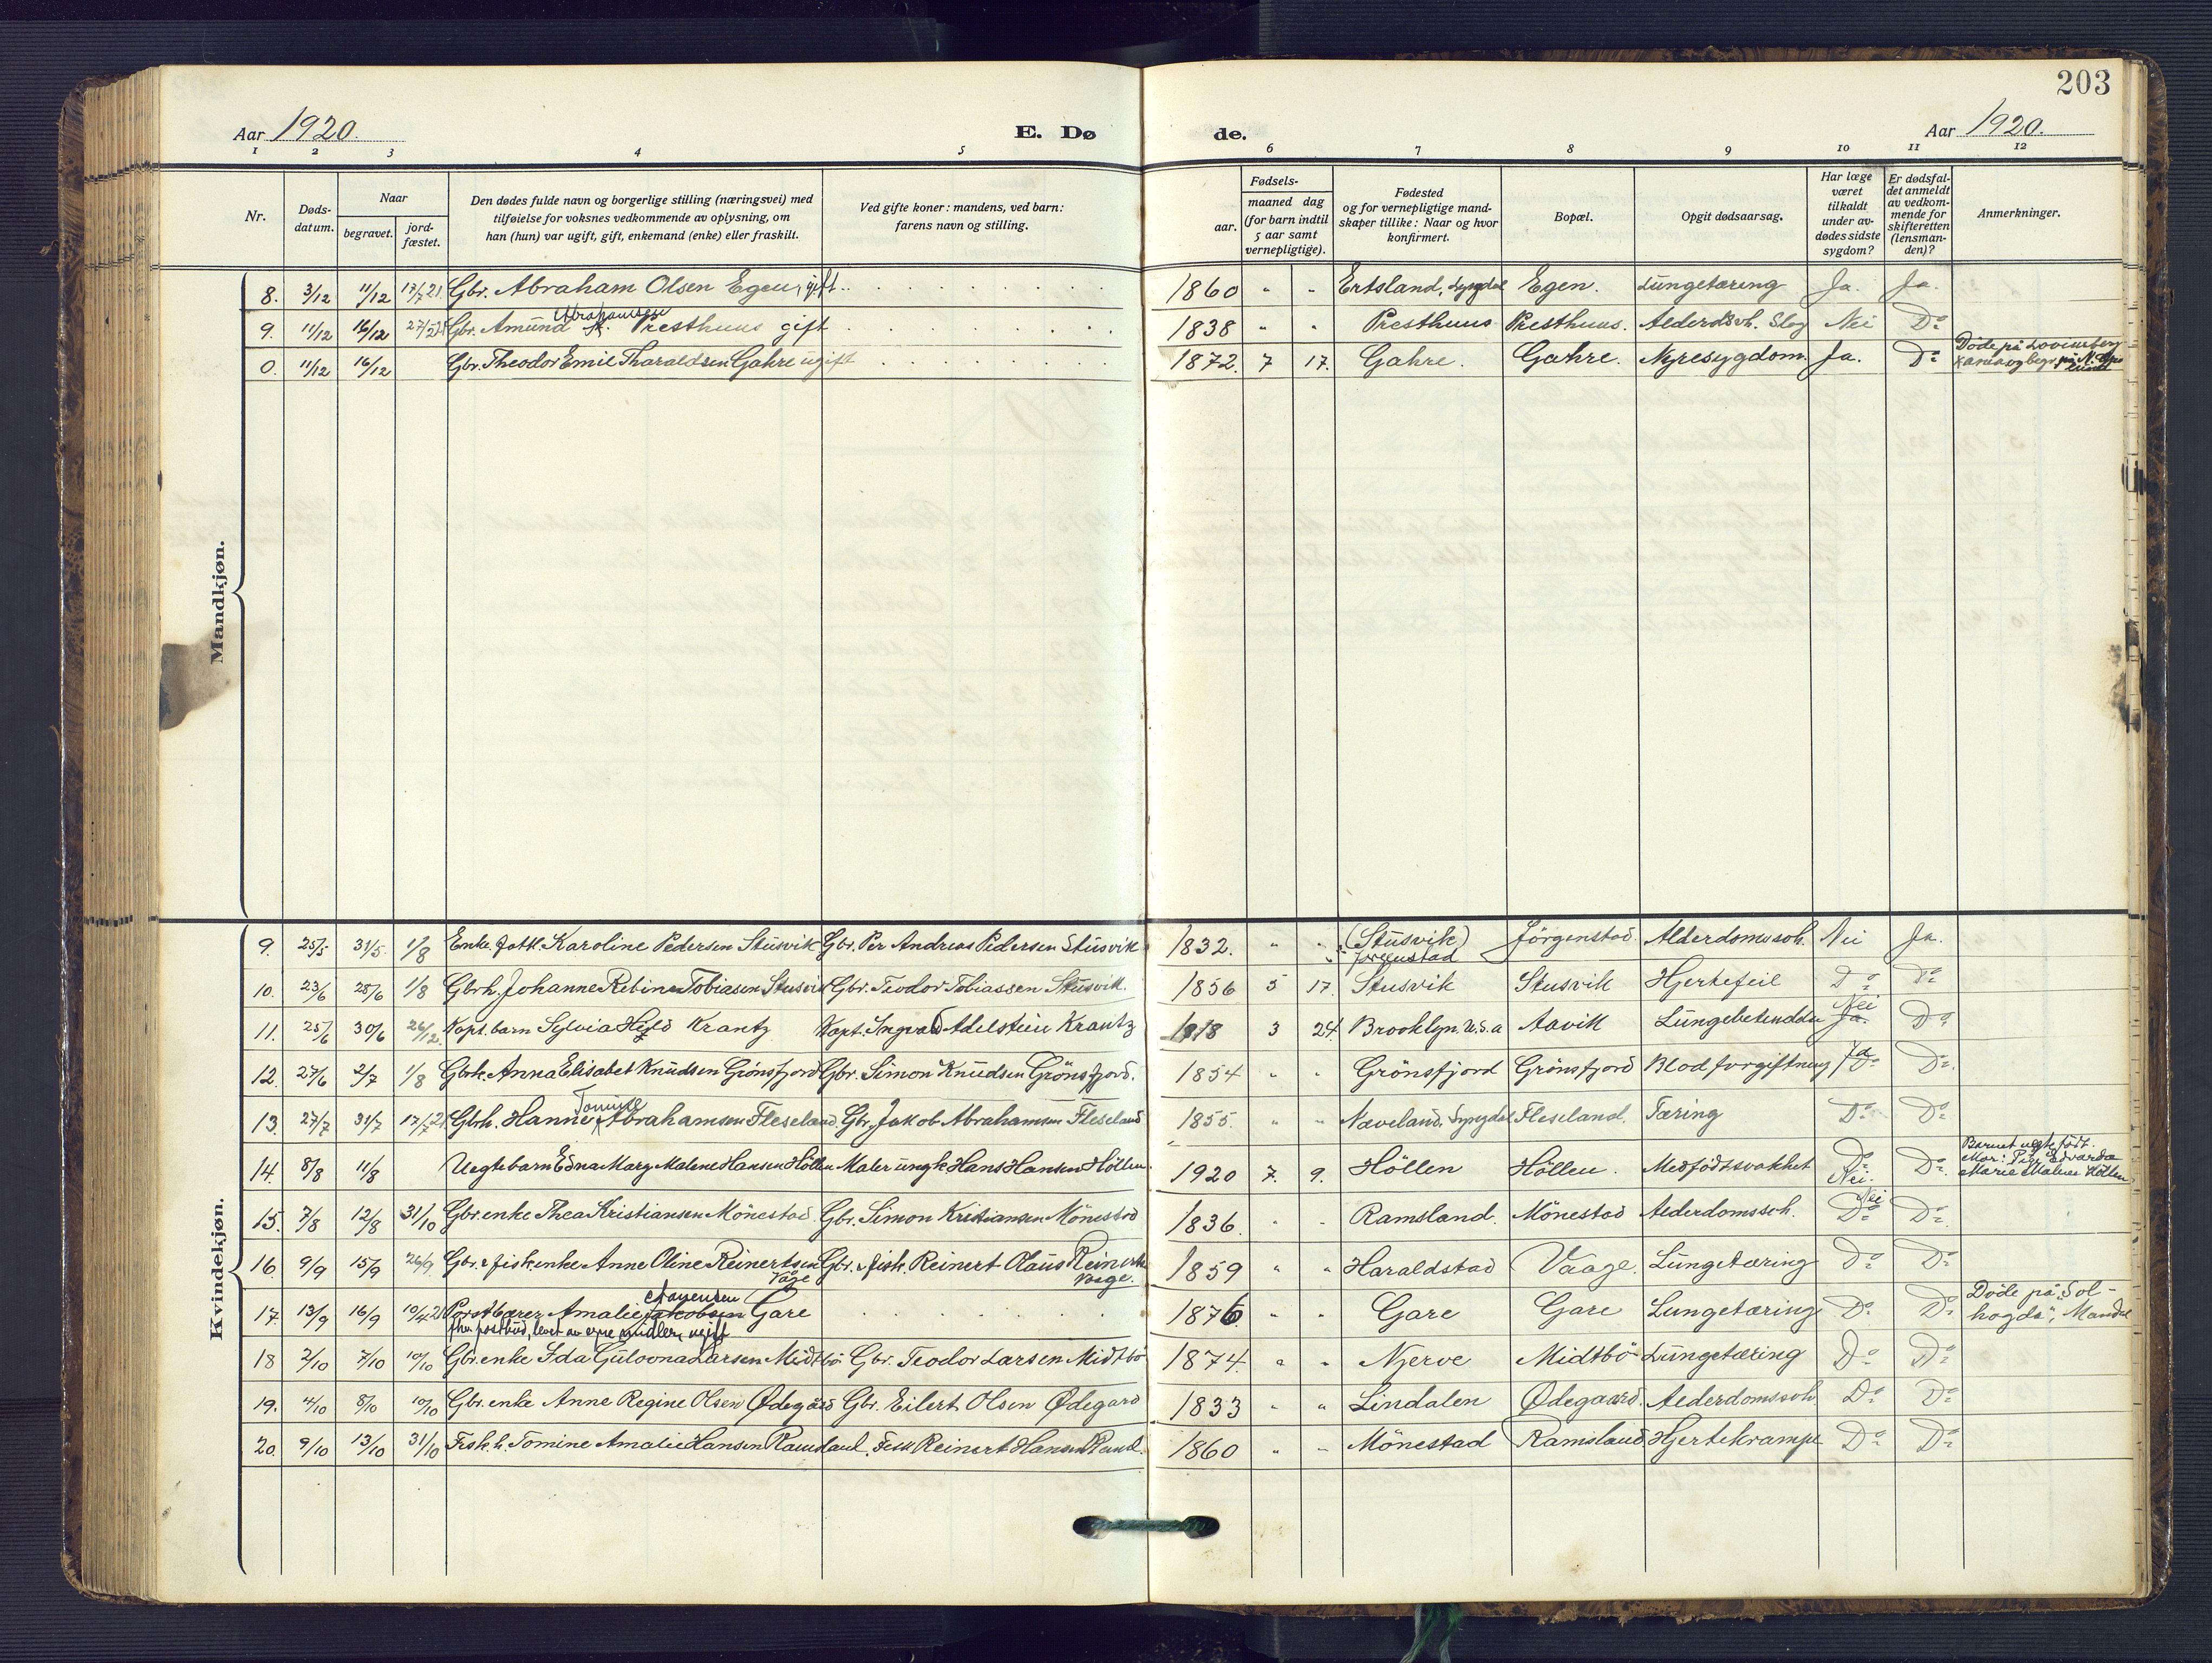 203
Aar 1920. E. Dø de. Aar 1920.
1 2 3 4 5 6 7 8 9 10 11 12
Nr. Døds-datum. Naar begravet. jord-fæstet. Den dødes fulde navn og borgerlige stilling (næringsvei) med tilføielse for voksnes vedkommende av oplysning, om han (hun) var ugift, gift, enkemand (enke) eller fraskilt. Ved gifte koner: mandens, ved barn: farens navn og stilling. Fødsels- aar. maaned dag (for barn indtil 5 aar samt vernepligtige). Fødested og for vernepligtige mand-skaper tillike: Naar og hvor konfirmert. Bopæl. Opgit dødsaarsag. Har læge været tilkaldt under av-dødes sidste sygdom? Er dødsfal-det anmeldt av vedkom-mende for skifteretten (lensman-den)? Anmerkninger.
Mandkjøn.
8. 3/12 11/12 17/7 21 Gbr. Abraham Olsen Egen, gift. 1860 " " Ertsland, Lyngdal Egen. Lungetæring Ja. Ja.
9. 11/12 16/12 27/3 21 Gbr. Amund Abrahamsen Presthuus gift 1838 " " Presthuus Presthuus. Alderdsch. Slag Nei Do
0. 11/12 16/12 Gbr. Theodor Emil Tharaldsen Gahre ugift 1872. 7 17. Gahre. Gahre. Nyresygdom. Ja. Do Døde på Lovisenberg
Kvindekjøn.
9. 25/5 31/5 1/8 Enke Karoline Pedersen Stusvik Gbr. Per Andreas Pedersen Stusvik 1832. " " (Stusvik) Jörgenstad Jörgenstad Alderdomssch. Nei Ja.
10. 23/6 28/6 1/8 Gbrh. Johanne Rebina Tobiasen Stusvik Gbr. Teodor Tobiassen Stusvik. 1856 5 17. Stusvik Stusvik Hjertefeil Do Do
11. 25/6 30/6 26/12. Kapt. barn Sylvia Krantz Kapt. Ingvald Adelstein Krantz 1918 3 24. Brooklyn. U.S.a Aavik Lungebetendelse Nei Ja. Do
12. 27/6 2/7 1/8 Gbrk. Anna Elisabet Knudsen Grönsfjord Gbr. Simon Knudsen Grönsfjord. 1854 " " Grönsfjord Grönsfjord Blodforgiftning Ja Do Do
13. 27/7 31/7 17/7 21 Gbrh. Hanne Tomine Abrahamsen Fleseland. Gbr. Jakob Abrahamsen Fleseland 1855. " " Næveland, Lyngdal Fleseland. Tæring Do Do
14. 8/8 11/8 Uegte barn Edna Mary Malene Hansen Höllen Maler ungk. Hans Hansen Höllen. 1920 7. 9. Höllen Höllen. Medfödt svakhet Do Nei. Do Barnet uegte födt. Mor: Pige Edvarda Marie Malene Höllen
15. 7/8 12/8 31/10 Gbr. enke Thea Kristiansen Mönestad Gbr. Simon Kristiansen Mönestad 1836. " " Ramsland. Mönestad Alderdomssch. Nei Do Do
16. 9/9 15/9 26/9 Gbr. & fisk. enke Anne Oline Reinertsen Våge Gbr. & fisk. Reinert Olaus Reinerts. Vaage. 1859 " " Haraldstad Vaage. Lungetæring Do Do
17. 13/9 16/9 10/4 21 Postbærer Amalie Jakobsen Gare 1876 " " Gare Gare Lungetæring Do Do Döde på "Sol-
fhv. postbud, levet av egne midler, ugift högda", Mandal
18 2/10 7/10 10/10 Gbr. enke Ida Gulovna Larsen Midtbö Gbr. Teodor Larsen Midtbö 1874. " " Njerve Midtbö Lungetæring Do Do
19. 4/10 8/10 10/10 Gbr. enke Anne Regine Olsen Ødegård Gbr. Eilert Olsen Ødegard 1833 " " Lindalen Ødegaard. Alderdomssch. Do Do
20. 9/10 13/10 31/10 Fisk. h. Tomine Amalie Hansen Ramsland. Fisk Reinert Hansen Ramsl. 1860 " " Mönestad Ramsland Hjertekrampe Do Do